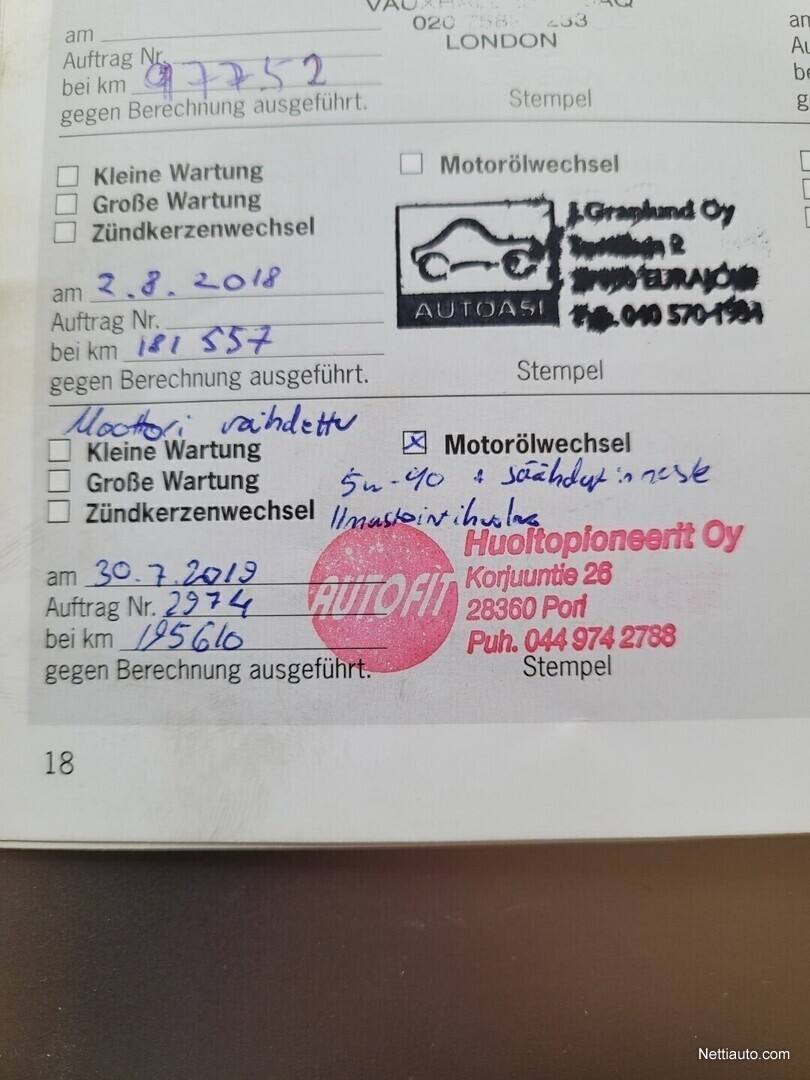 am
020
LONDON
Auftrag Nr.
bei km 97752
gegen Berechnung ausgeführt.
Stempel
Kleine Wartung
Große Wartung
Zündkerzenwechsel
Motorölwechsel
am 2.8.2018
Auftrag Nr.
bei km 181 557
gegen Berechnung ausgeführt.
AUTOASI
J.Granlund Oy
Stempel
Moottori vaihdettu
Kleine Wartung
Große Wartung
Zündkerzenwechsel
Motorölwechsel
5w-40
am 30.7.2019
Auftrag Nr. 2974
bei km 195610
gegen Berechnung ausgeführt.
AUTOFIT
Huoltopioneerit Oy
Korjuuntie 26
28360 Pori
Puh. 044 974 2788
Stempel
18
Nettiauto.com